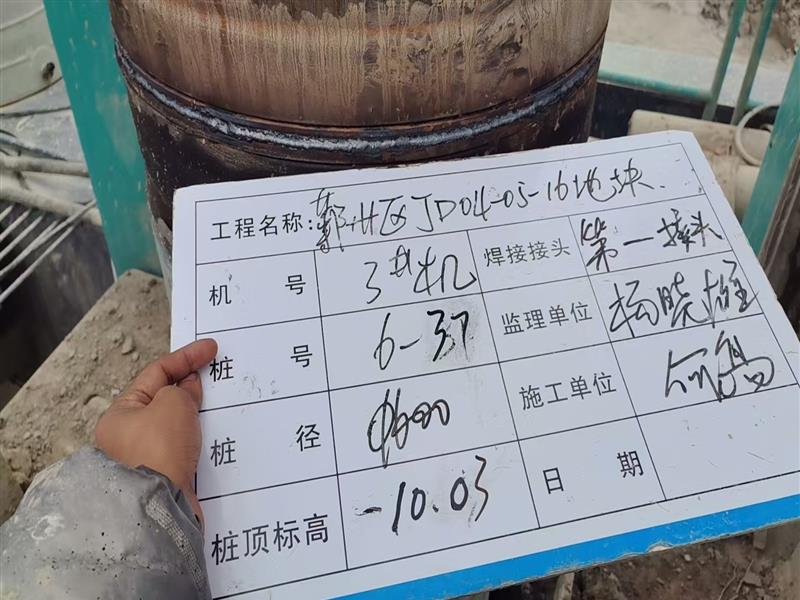 工程名称:鄞州区JD04-05-16地块
机号 3#机 焊接接头 第一接头
桩号 6-37 监理单位 杨晓雄
桩径 Φ600 施工单位
桩顶标高 -10.03 日期